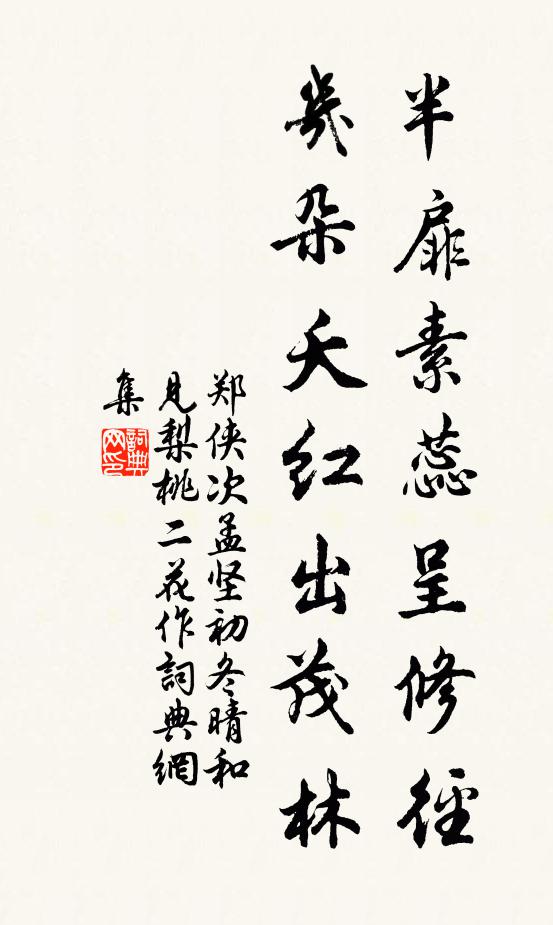 半扉素蕊呈修径
几朵夭红出茂林
郑侠次孟坚初冬晴和
见梨桃二花作詞典網
集
詞典
网印